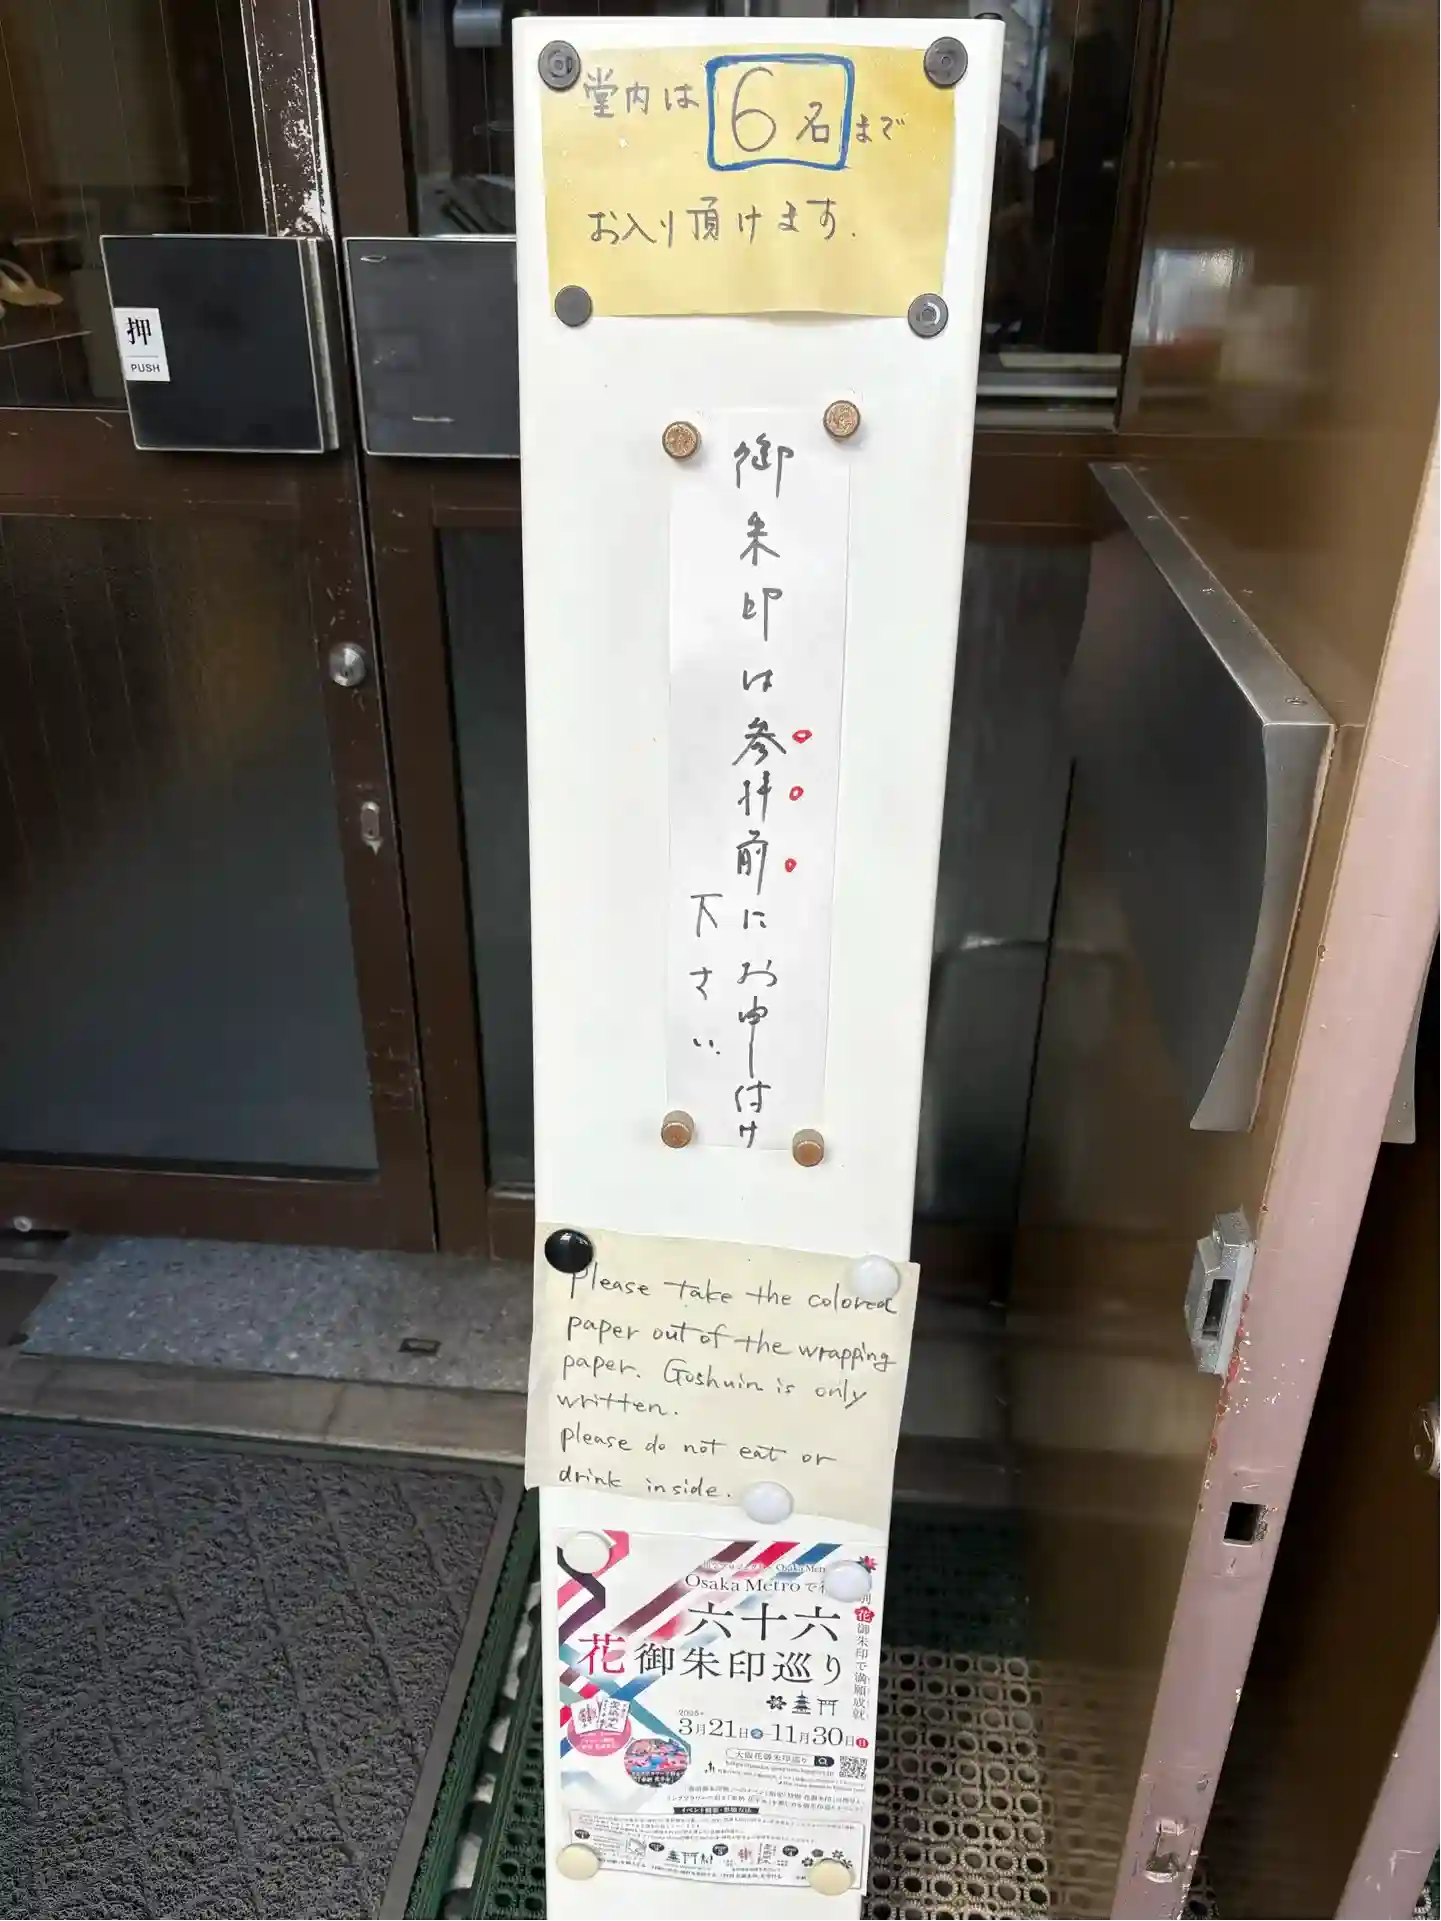 堂内は6名まで
お入り頂けます.
押
PUSH
御朱印は参拝前にお申し付け
下さい.
Please take the colored
paper out of the wrapping
paper. Goshuin is only
written.
please do not eat or
drink inside.
Osaka Metro
Osaka Metroで
六十六
花御朱印巡り
花御朱印で満願成就
3月21日金-11月30日日
大阪花御朱印巡り